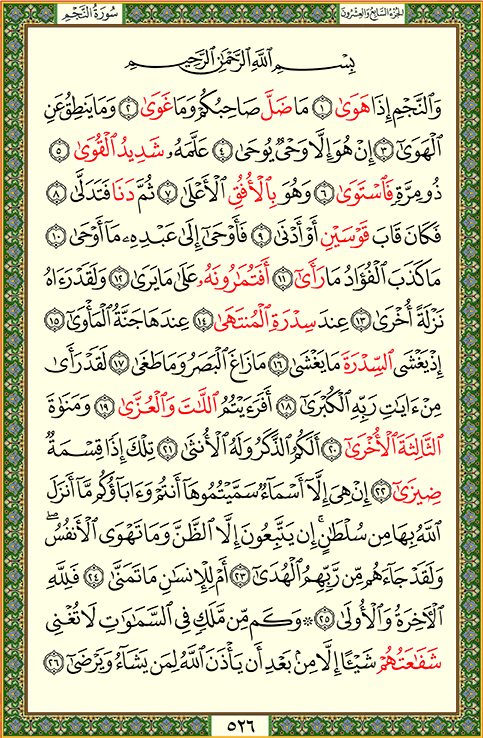 الجُزْءُ السَّابِعُ وَالعِشْرُونَ
سُورَةُ النَّجْمِ
بِسْمِ اللَّهِ الرَّحْمَٰنِ الرَّحِيمِ
وَالنَّجْمِ إِذَا هَوَىٰ ١ مَا ضَلَّ صَاحِبُكُمْ وَمَا غَوَىٰ ٢ وَمَا يَنطِقُ عَنِ
الْهَوَىٰ ٣ إِنْ هُوَ إِلَّا وَحْيٌ يُوحَىٰ ٤ عَلَّمَهُۥ شَدِيدُ الْقُوَىٰ ٥
ذُو مِرَّةٍ فَاسْتَوَىٰ ٦ وَهُوَ بِالْأُفُقِ الْأَعْلَىٰ ٧ ثُمَّ دَنَا فَتَدَلَّىٰ ٨
فَكَانَ قَابَ قَوْسَيْنِ أَوْ أَدْنَىٰ ٩ فَأَوْحَىٰ إِلَىٰ عَبْدِهِۦ مَا أَوْحَىٰ ١٠
مَا كَذَبَ الْفُؤَادُ مَا رَأَىٰ ١١ أَفَتُمَارُونَهُۥ عَلَىٰ مَا يَرَىٰ ١٢ وَلَقَدْ رَءَاهُ
نَزْلَةً أُخْرَىٰ ١٣ عِندَ سِدْرَةِ الْمُنتَهَىٰ ١٤ عِندَهَا جَنَّةُ الْمَأْوَىٰ ١٥
إِذْ يَغْشَى السِّدْرَةَ مَا يَغْشَىٰ ١٦ مَا زَاغَ الْبَصَرُ وَمَا طَغَىٰ ١٧ لَقَدْ رَأَىٰ
مِنْ ءَايَاتِ رَبِّهِ الْكُبْرَىٰ ١٨ أَفَرَءَيْتُمُ اللَّاتَ وَالْعُزَّىٰ ١٩ وَمَنَوٰةَ
الثَّالِثَةَ الْأُخْرَىٰ ٢٠ أَلَكُمُ الذَّكَرُ وَلَهُ الْأُنثَىٰ ٢١ تِلْكَ إِذًا قِسْمَةٌ
ضِيزَىٰ ٢٢ إِنْ هِيَ إِلَّا أَسْمَاءٌ سَمَّيْتُمُوهَا أَنتُمْ وَءَابَاؤُكُم مَّا أَنزَلَ
اللَّهُ بِهَا مِن سُلْطَانٍ ۚ إِن يَتَّبِعُونَ إِلَّا الظَّنَّ وَمَا تَهْوَى الْأَنفُسُ ۖ
وَلَقَدْ جَاءَهُم مِّن رَّبِّهِمُ الْهُدَىٰ ٢٣ أَمْ لِلْإِنسَانِ مَا تَمَنَّىٰ ٢٤ فَلِلَّهِ
الْآخِرَةُ وَالْأُولَىٰ ٢٥ ۞ وَكَم مِّن مَّلَكٍ فِي السَّمَاوَاتِ لَا تُغْنِي
شَفَاعَتُهُمْ شَيْئًا إِلَّا مِن بَعْدِ أَن يَأْذَنَ اللَّهُ لِمَن يَشَاءُ وَيَرْضَىٰ ٢٦
٥٢٦